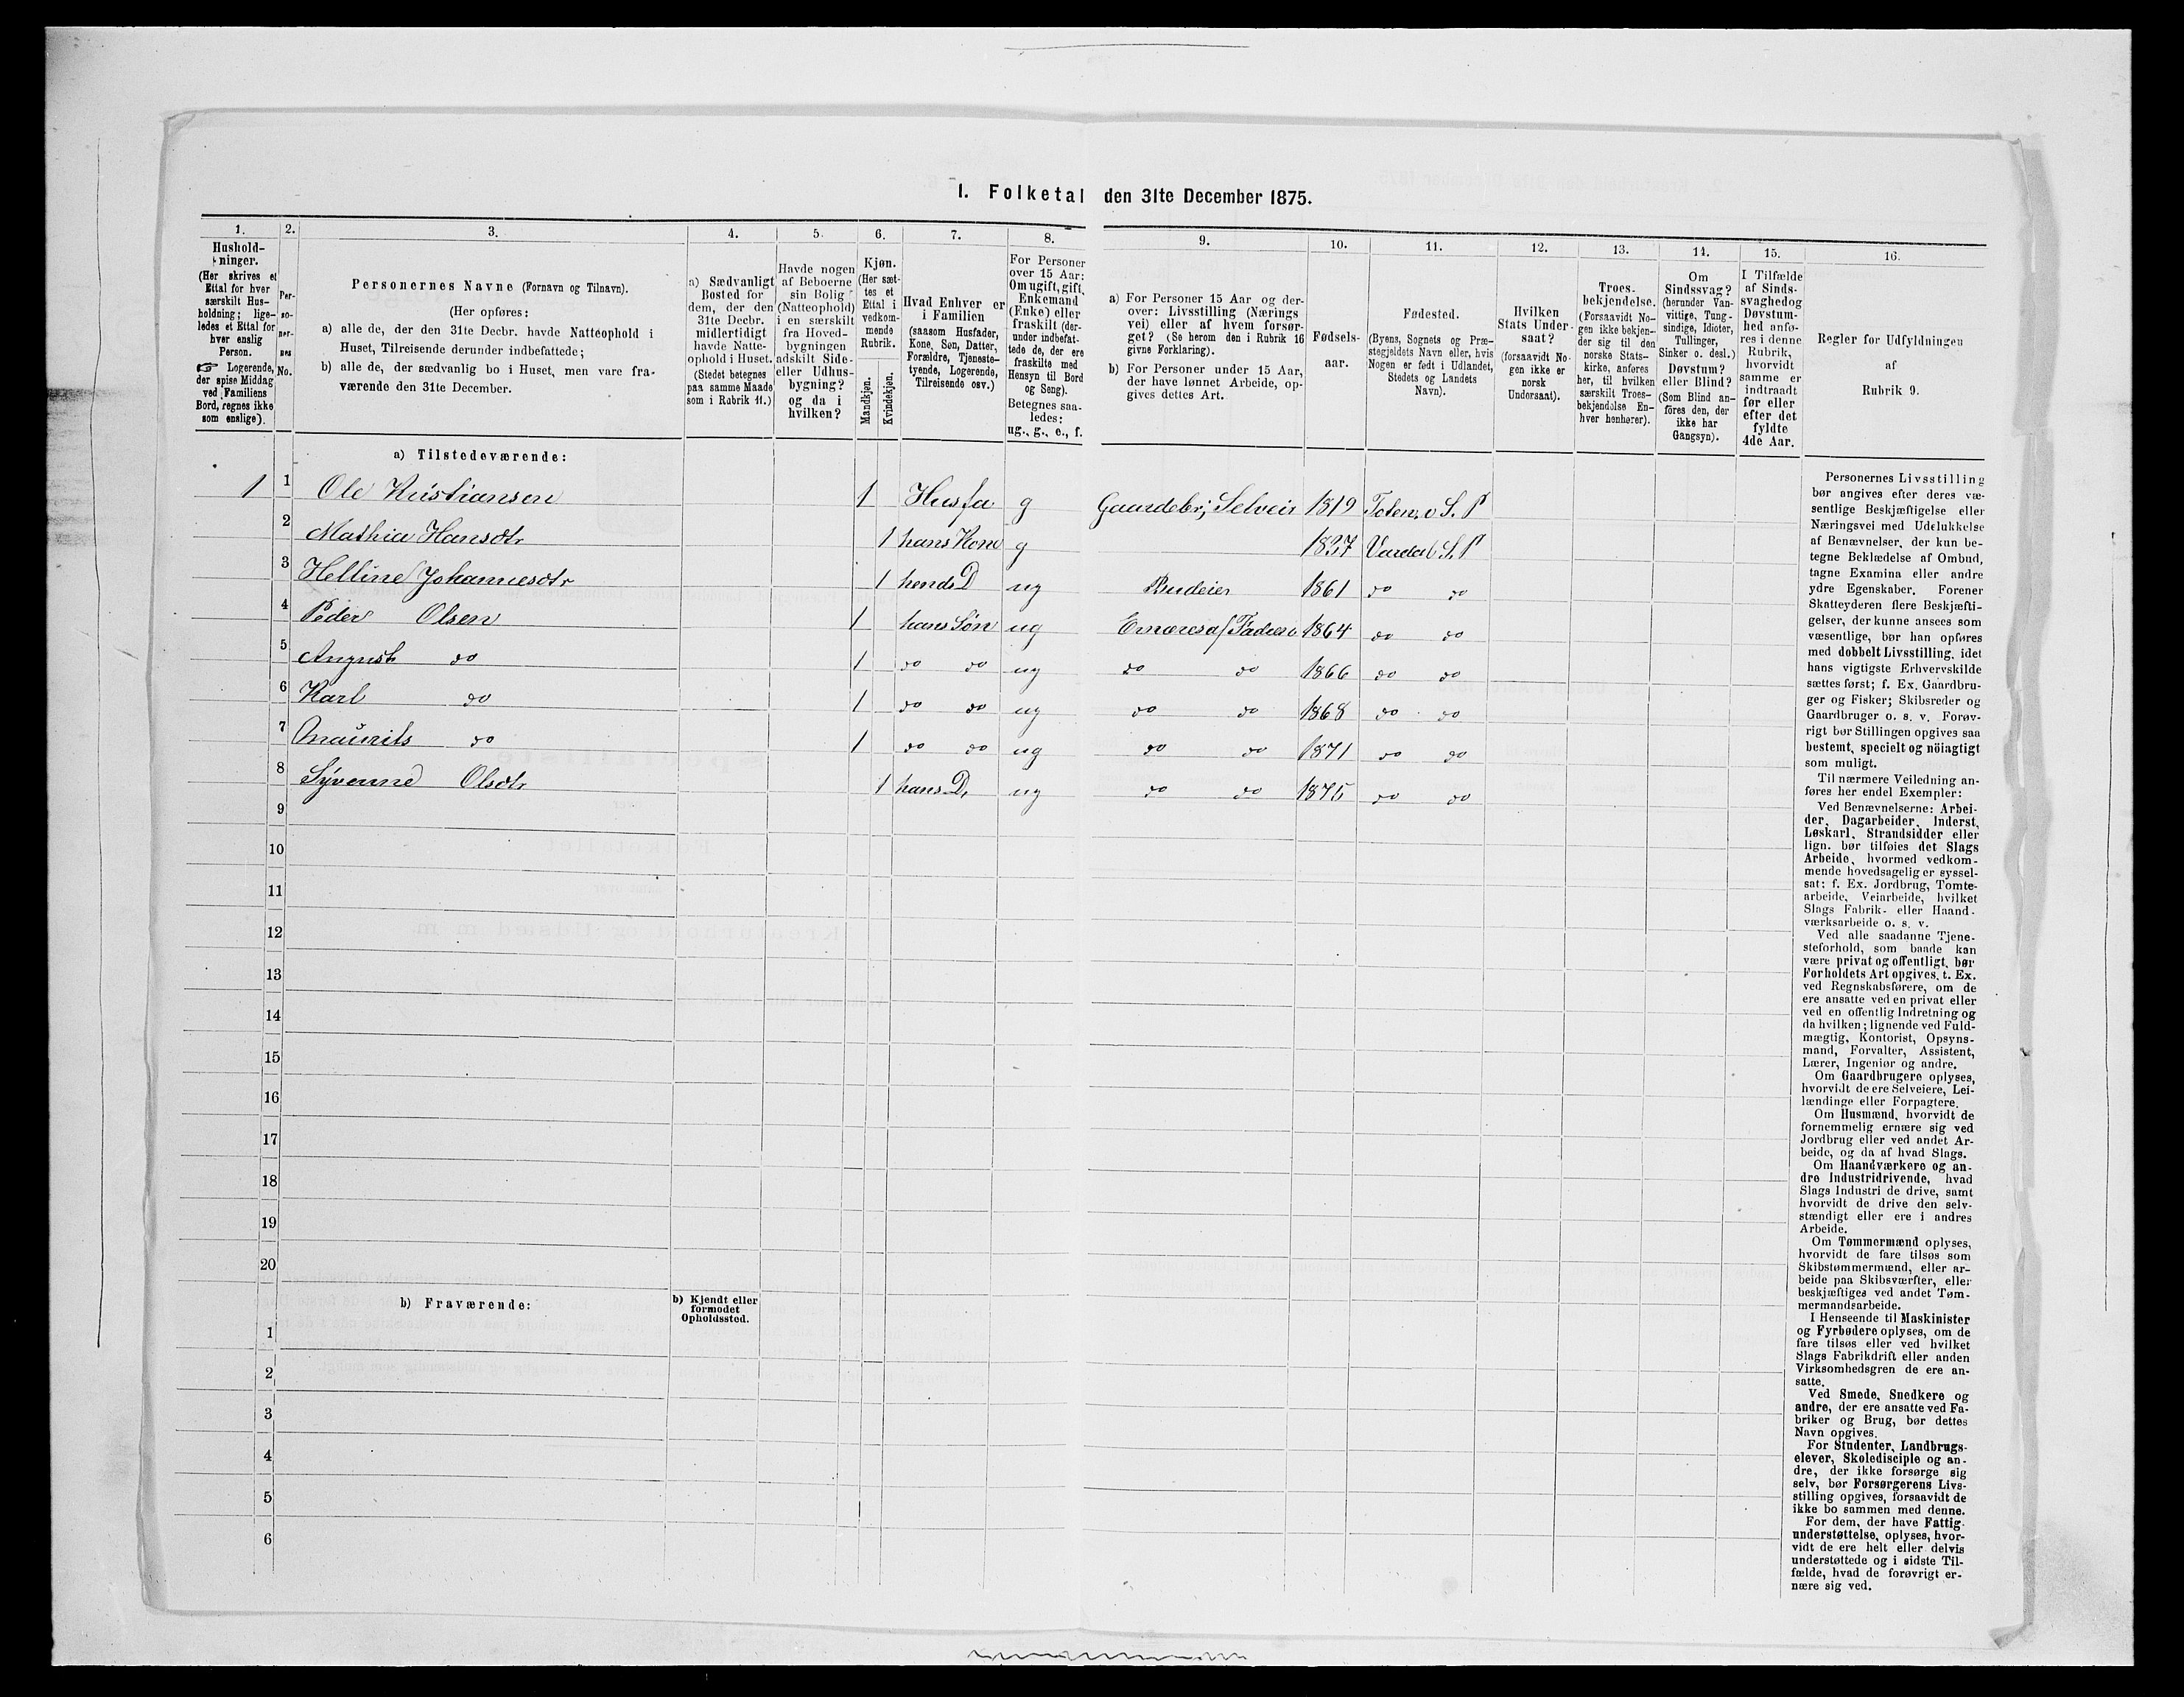 I. Folketal den 31te December 1875.
1.
Hushold-
ninger.
(Her skrives et
Ettal for hver
særskilt Hus-
holdning; lige-
ledes et Ettal for
hver enslig
Person.
☞ Logerende,
der spise Middag
ved Familiens
Bord, regnes ikke
som enslige).
2.
Per-
so-
ner-
nes
No.
3.
Personernes Navne (Fornavn og Tilnavn).
(Her opføres:
a) alle de, der den 31te Decbr. havde Natteophold i
Huset, Tilreisende derunder indbefattede;
b) alle de, der sædvanlig bo i Huset, men vare fra-
værende den 31te December.
4.
a) Sædvanligt
Bosted for
dem, der den
31te Decbr.
midlertidigt
havde Natte-
ophold i Huset.
(Stedet betegnes
paa samme Maade
som i Rubrik 11.)
5.
Havde nogen
af Beboerne
sin Bolig
(Natteophold)
i en særskilt
fra Hoved-
bygningen
adskilt Side-
eller Udhus-
bygning?
og da i
hvilken?
6.
Kjøn.
(Her sæt-
tes et
Ettal i
vedkom-
mende
Rubrik.
Mandkjøn.
Kvindekjøn.
7.
Hvad Enhver er
i Familien
(saasom Husfader,
Kone, Søn, Datter,
Forældre, Tjeneste-
tyende, Logerende,
Tilreisende osv.)
8.
For Personer
over 15 Aar:
Om ugift, gift,
Enkemand
(Enke) eller
fraskilt (der-
under indbefat-
tede de, der ere
fraskilte med
Hensyn til Bord
og Seng).
Betegnes saa-
ledes:
ug., g., e., f.
9.
a) For Personer 15 Aar og der-
over: Livsstilling (Nærings
vei) eller af hvem forsør-
get? (Se herom den i Rubrik 16
givne Forklaring).
b) For Personer under 15 Aar,
der have lønnet Arbeide, op-
gives dettes Art.
10.
Fødsels-
aar.
11.
Fødested.
(Byens, Sognets og Præ-
stegjeldets Navn eller, hvis
Nogen er født i Udlandet,
Stedets og Landets
Navn).
12.
Hvilken
Stats Under-
saat?
(forsaavidt No-
gen ikke er
norsk
Undersaat).
13.
Troes-
bekjendelse.
(Forsaavidt No-
gen ikke bekjen-
der sig til den
norske Stats-
kirke, anføres
her, til hvilken
særskilt Troes-
bekjendelse En-
hver henhører).
14.
Om
Sindssvag?
(herunder Van-
vittige, Tung-
sindige, Idioter,
Tullinger,
Sinker o. desl.)
Døvstum?
eller Blind?
(Som Blind an-
føres den, der
ikke har
Gangsyn).
15.
I Tilfælde
af Sinds-
svaghed og
Døvstum-
hed anfø-
res i denne
Rubrik,
hvorvidt
samme er
indtraadt
før eller
efter det
fyldte
4de Aar.
16.
Regler for Udfyldningen
af
Rubrik 9.
a) Tilstedeværende:
1 1 Ole Kristiansen 1 Husfa g Gaardbr, Selveir 1819 Toten, o S. P
2 Mathia Hansdtr 1 hans Kone g 1837 Vardal S. P
3 Helline Johannesdtr 1 hends D ug Budeier 1861 do do
4 Peder Olsen 1 hans Søn ug Ernæres af Fadern 1864 do do
5 August do 1 do do ug do do 1866 do do
6 Karl do 1 do do ug do do 1868 do do
7 Maurits do 1 do do ug do do 1871 do do
8 Syvenne Olsdtr 1 hans D, ug do do 1875 do do
9
10
11
12
13
14
15
16
17
18
19
20
b) Fraværende:
b) Kjendt eller
formodet
Opholdssted.
1
2
3
4
5
6
Personernes Livsstilling
bør angives efter deres væ-
sentlige Beskjæftigelse eller
Næringsvei med Udelukkelse
af Benævnelser, der kun be-
tegne Beklædelse af Ombud,
tagne Examina eller andre
ydre Egenskaber. Forener
Skatteyderen flere Beskjæfti-
gelser, der kunne ansees som
væsentlige, bør han opføres
med dobbelt Livsstilling, idet
hans vigtigste Erhvervskilde
sættes først; f. Ex. Gaardbru-
ger og Fisker; Skibsreder og
Gaardbruger o. s. v. Forøv-
rigt bør Stillingen opgives saa
bestemt, specielt og nöiagtigt
som muligt.
Til nærmere Veiledning an-
føres her endel Exempler:
Ved Benævnelserne: Arbei-
der, Dagarbeider, Inderst,
Løskarl, Strandsidder eller
lign. bør tilføies det Slags
Arbeide, hvormed vedkom-
mende hovedsagelig er syssel-
sat; f. Ex. Jordbrug, Tomte-
arbeide, Veiarbeide, hvilket
Slags Fabrik- eller Haand-
værksarbeide o. s. v.
Ved alle saadanne Tjene-
steforhold, som baade kan
være privat og offentligt, bør
Forholdets Art opgives, t. Ex.
ved Regnskabsførere, om de
ere ansatte ved en privat eller
ved en offentlig Indretning og
da hvilken; lignende ved Fuld-
mægtig, Kontorist, Opsyns-
mand, Forvalter, Assistent,
Lærer, Ingeniør og andre.
Om Gaardbrugere oplyses,
hvorvidt de ere Selveiere, Lei-
lændinge eller Forpagtere.
Om Husmænd, hvorvidt de
fornemmelig ernære sig ved
Jordbrug eller ved andet Ar-
beide, og da af hvad Slags.
Om Haandværkere og an-
dre Industridrivende, hvad
Slags Industri de drive, samt
hvorvidt de drive den selv-
stændigt eller ere i andres
Arbeide.
Om Tømmermænd oplyses,
hvorvidt de fare tilsøs som
Skibstømmermænd, eller ar-
beide paa Skibsværfter, eller
beskjæftiges ved andet Tøm-
mermandsarbeide.
I Henseende til Maskinister
og Fyrbødere oplyses, om de
fare tilsøs eller ved hvilket
Slags Fabrikdrift eller anden
Virksomhedsgren de ere an-
satte.
Ved Smede, Snedkere og
andre, der ere ansatte ved Fa-
briker og Brug, bør dettes
Navn opgives.
For Studenter, Landbrugs-
elever, Skoledisciple og an-
dre, der ikke forsørge sig
selv, bør Forsørgerens Livs-
stilling opgives, forsaavidt de
ikke bo sammen med denne.
For dem, der have Fattig-
understøttelse, oplyses, hvor-
vidt de ere helt eller delvis
understøttede og i sidste Til-
fælde, hvad de forøvrigt er-
nære sig ved.